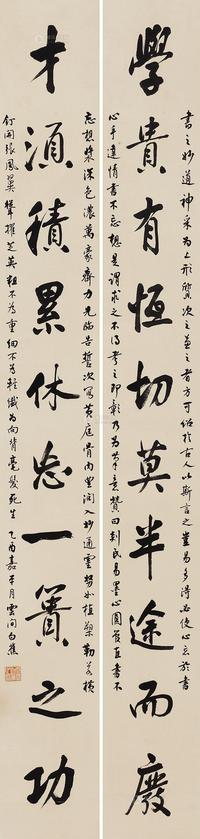 書之妙道神采為上形質次之兼之者方可紹於古人以斯言之豈易多得必使心忘於書
學貴有恆切莫半途而廢
心手達情書不忘想是謂求之不得考之即彰乃為筆意贊曰剡紙易墨心圓管直書不
忘想漿深色濃萬豪齊力先臨告誓次寫黃庭骨肉豐潤入妙通靈努如植槊勒若橫
才須積累休忘一簣之功
釘開張鳳翼聳擢芝英粗不為重細不為輕纖為向背毫髮死生 乙酉嘉平月雲間白蕉